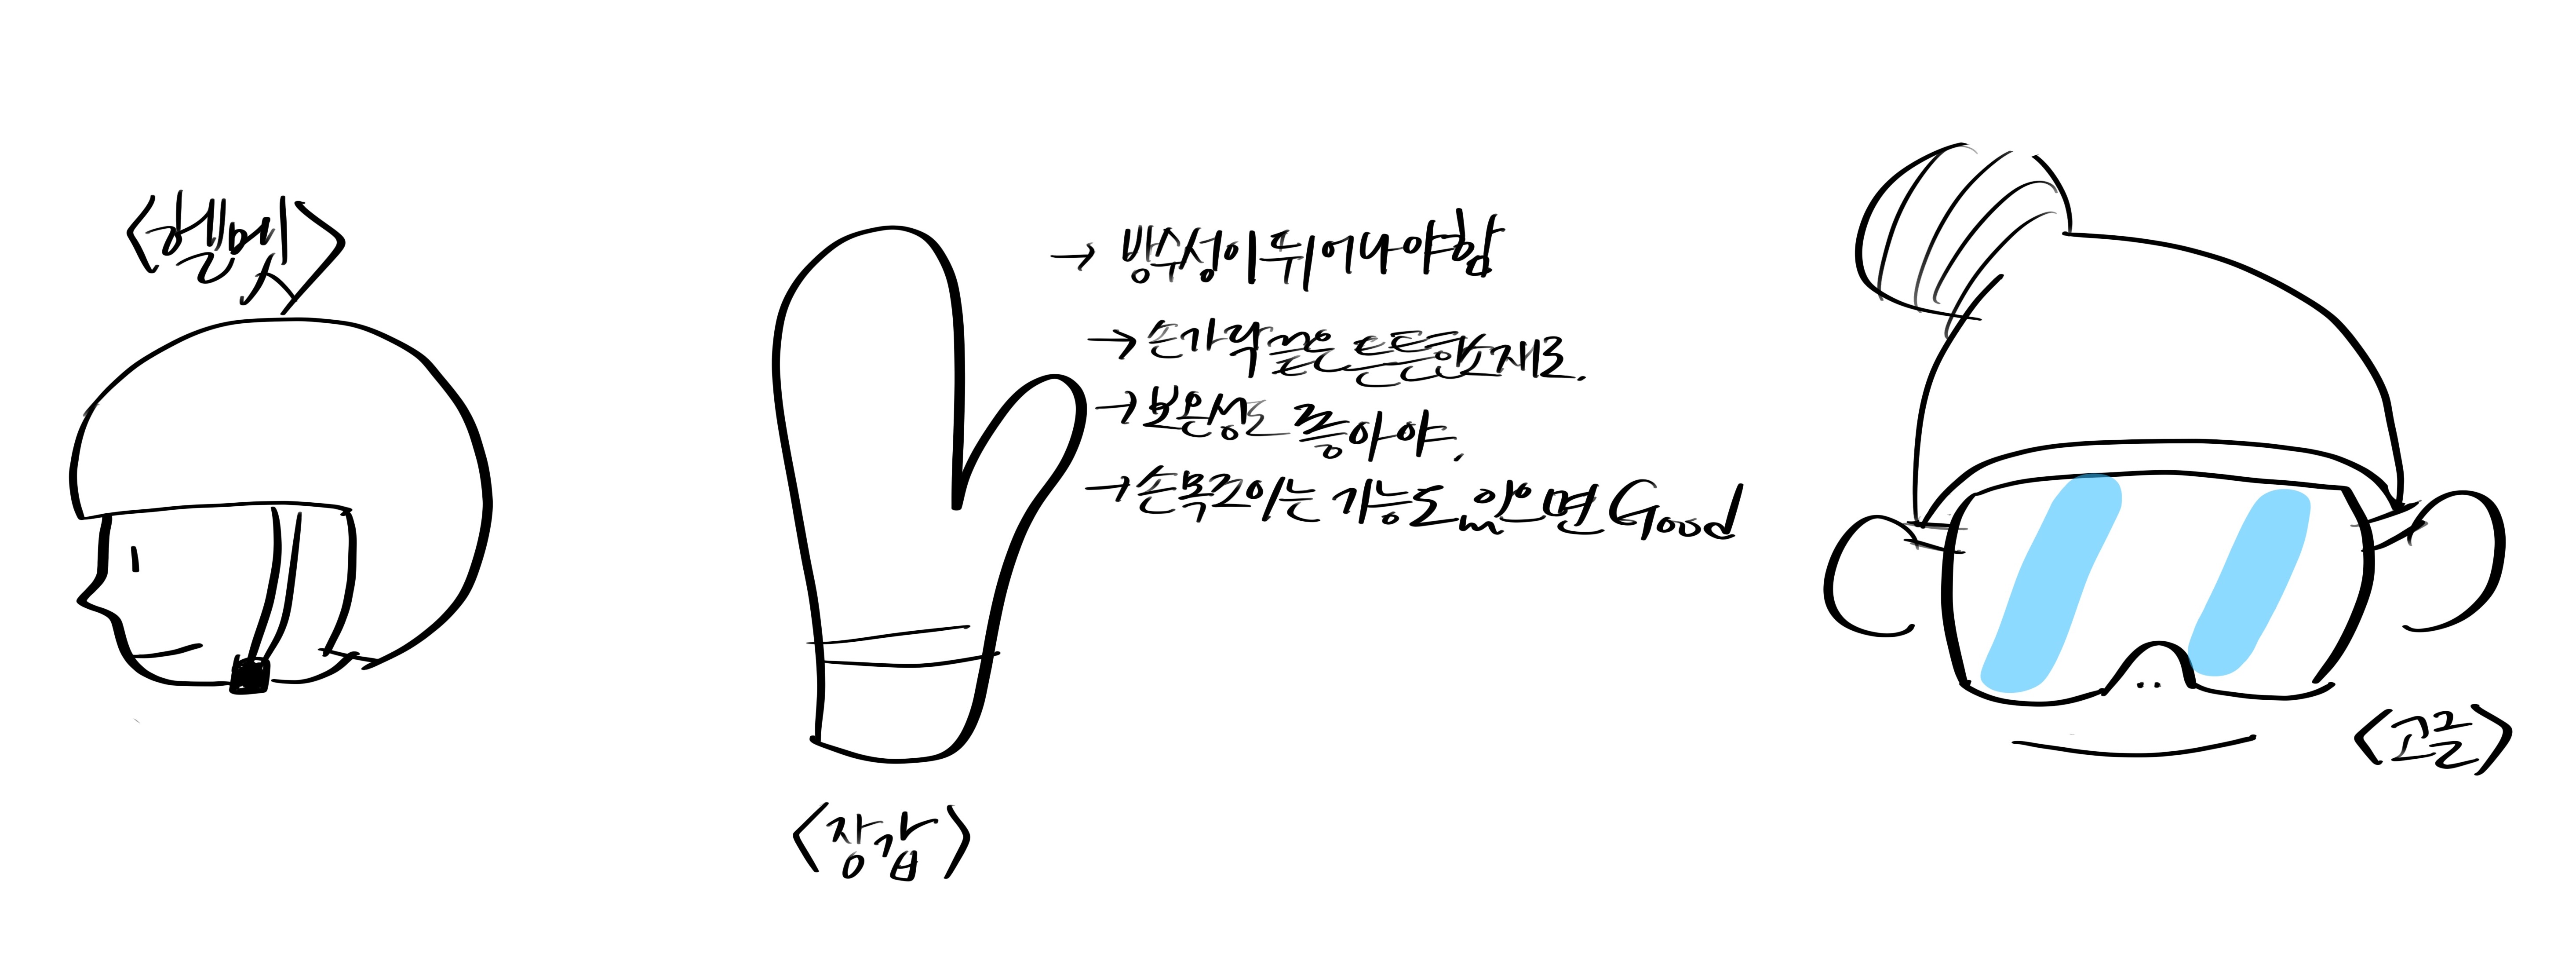 <헬멧>
→ 방수성이 뛰어나야함
→ 손가락 끝은 튼튼한 소재로.
→ 보온성도 좋아야.
→ 손목 조이는 기능도 있으면 Good
<장갑>
<고글>